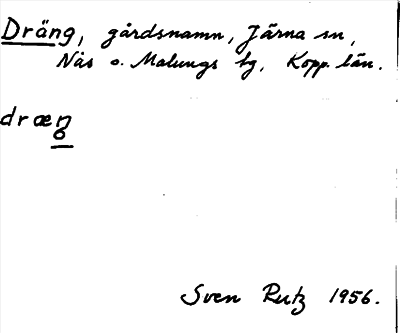 Dräng, gårdsnamn, Järna sn,
Näs o. Malungs tg, Kopp. län.
dræŋ
Sven Rutz 1956.